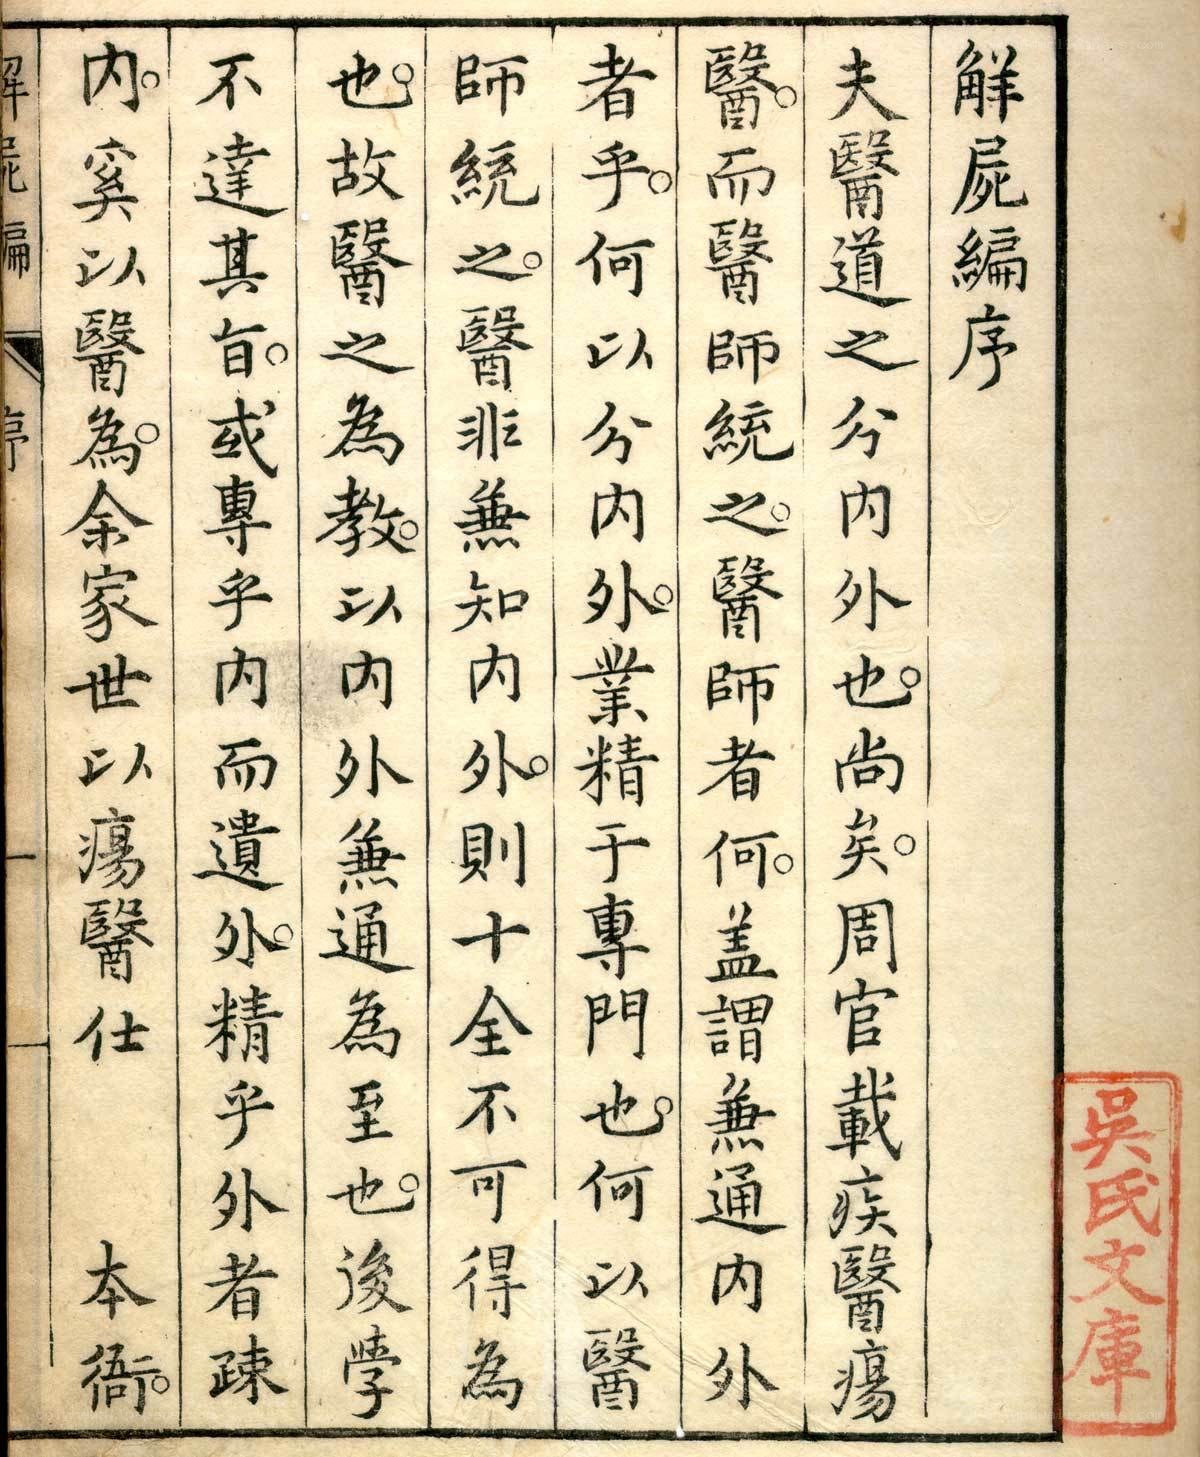 解屍編序
夫醫道之分内外也。尚矣。周官載疾醫瘍
醫。而醫師統之。醫師者何。盖謂兼通内外
者乎。何以分内外。業精于專門也。何以醫
師統之。醫非兼知内外。則十全不可得為
也。故醫之為教。以内外兼通為至也。後學
不達其旨。或專乎内而遺外。精乎外者疎
内。奚以醫為。余家世以瘍醫仕 本衙。
解屍編 序 一
吳氏文庫